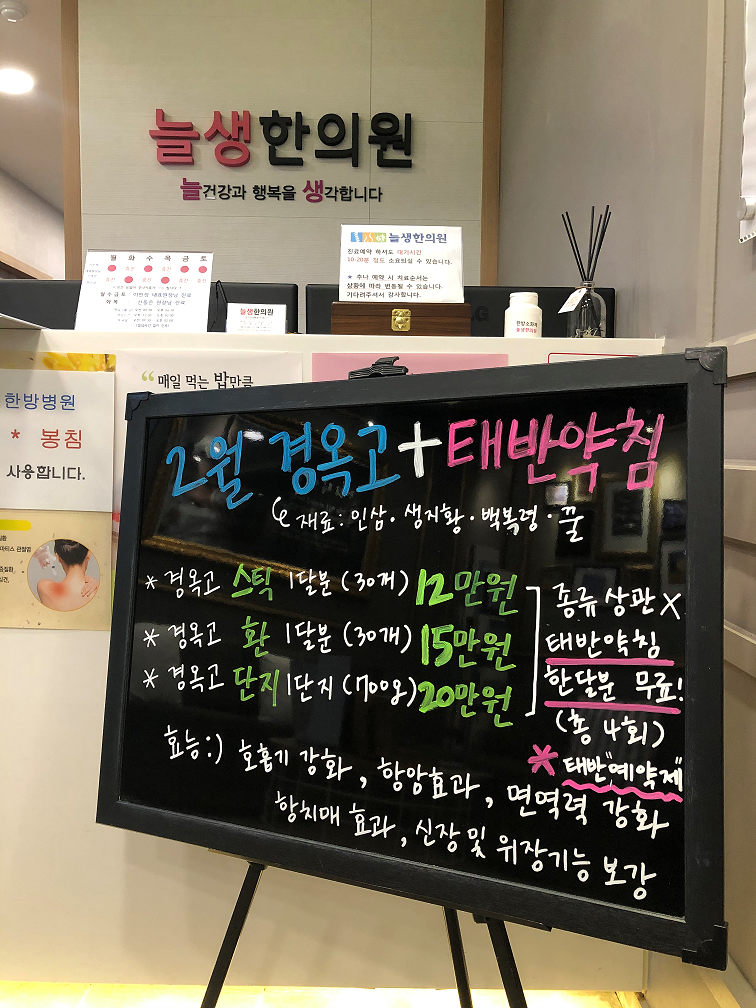 늘생한의원
늘건강과 행복을 생각합니다
늘생한의원
진료예약 하셔도 대기시간
10-20분 정도 소요되실 수 있습니다.
* 추나 예약 시 치료순서는
상황에 따라 변동될 수 있습니다.
기다려주셔서 감사합니다.
월 화 수 목 금 토
늘생한의원
한방소화제
늘생한의원
한방병원
* 봉침
사용합니다.
“ 매일 먹는 밥만큼
2월 경옥고+태반약침
재료: 인삼·생지황·백복령·꿀
* 경옥고 스틱 1달분 (30개) 12만원
* 경옥고 환 1달분 (30개) 15만원
* 경옥고 단지 1단지 (700g) 20만원
종류 상관 X
태반약침
한달분 무료!
(총 4회)
* 태반"예약제"
효능:) 호흡기 강화, 항암효과, 면역력 강화
항치매 효과, 신장 및 위장기능 보강